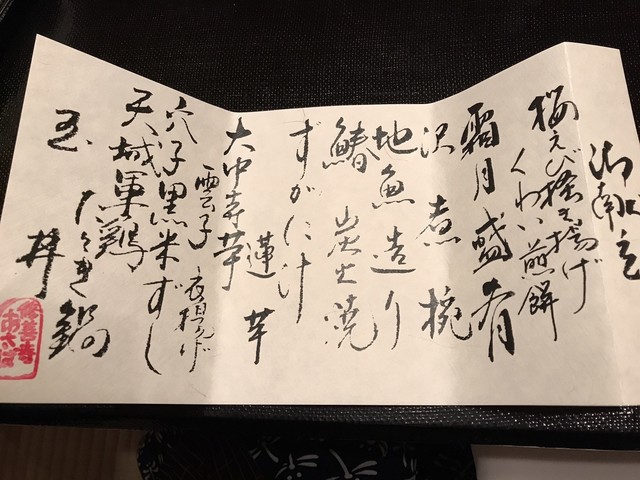 御献立
桜えび掻き揚げ
くわい煎餅
霜月盛肴
沢煮椀
地魚造り
鰆 炭火焼
ずがに汁
蓮芋
大中寺芋
雲子 衣揚げ
穴子黒米ずし
天城軍鶏
たたき鍋
玉丼
修善寺
あさば